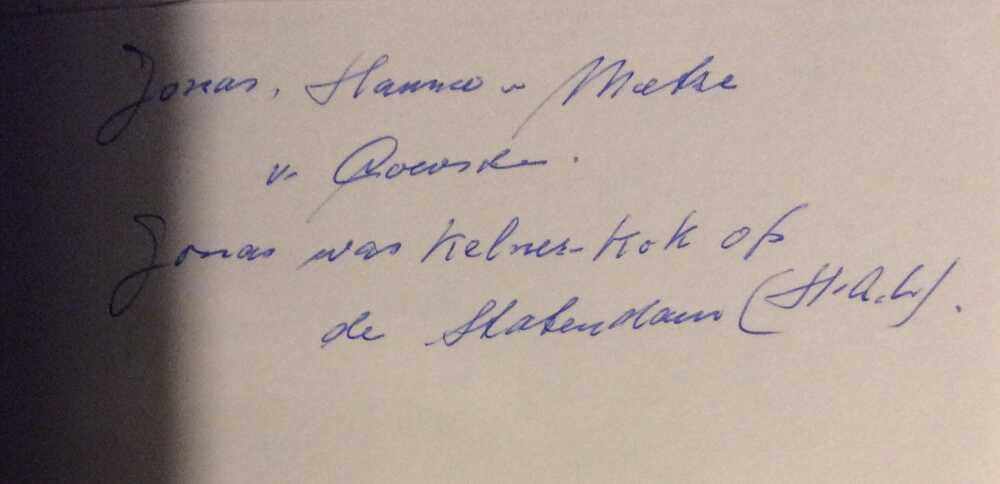 Jonas, Hanno v Mietze
v.
Jonas was Kelner-Kok op
de Statendam (H.A.L).